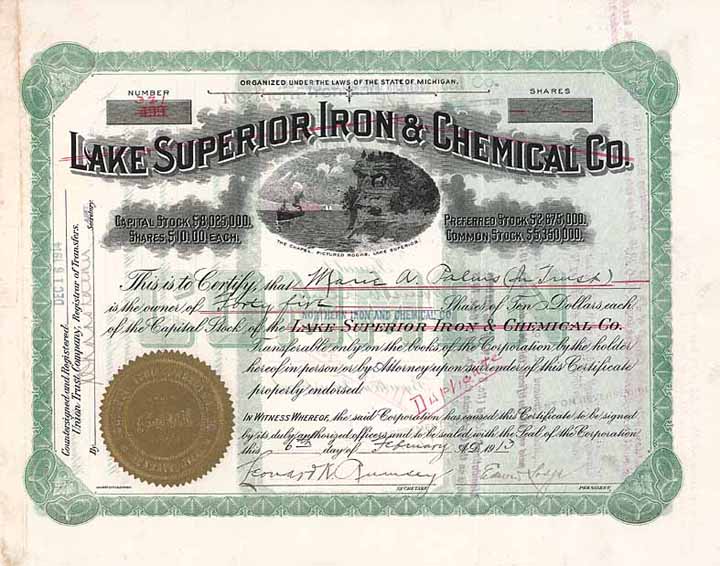 ORGANIZED UNDER THE LAWS OF THE STATE OF MICHIGAN.
NUMBER
SHARES
LAKE SUPERIOR IRON & CHEMICAL CO.
CAPITAL STOCK $8,025,000.
SHARES $10.00 EACH.
PREFERRED STOCK $2,675,000.
COMMON STOCK $5,350,000.
THE CHAPEL, PICTURED ROCKS, LAKE SUPERIOR.
This is to Certify, that Marie A. (In Trust)
is the owner of Forty five Shares of Ten Dollars each
NORTHERN IRON AND CHEMICAL CO.
of the Capital Stock of the LAKE SUPERIOR IRON & CHEMICAL CO.
Transferable only on the books of the Corporation by the holder
hereof in person or by Attorney upon surrender of this Certificate
properly endorsed.
Duplicate
IN WITNESS WHEREOF, the said Corporation has caused this Certificate to be signed
by its duly authorized officers and to be sealed with the Seal of the Corporation
this 6th day of February A.D. 1913
SECRETARY
PRESIDENT
Countersigned and Registered
DEC 16 1914
Union Trust Company, Registrar of Transfers.
By
Secretary.